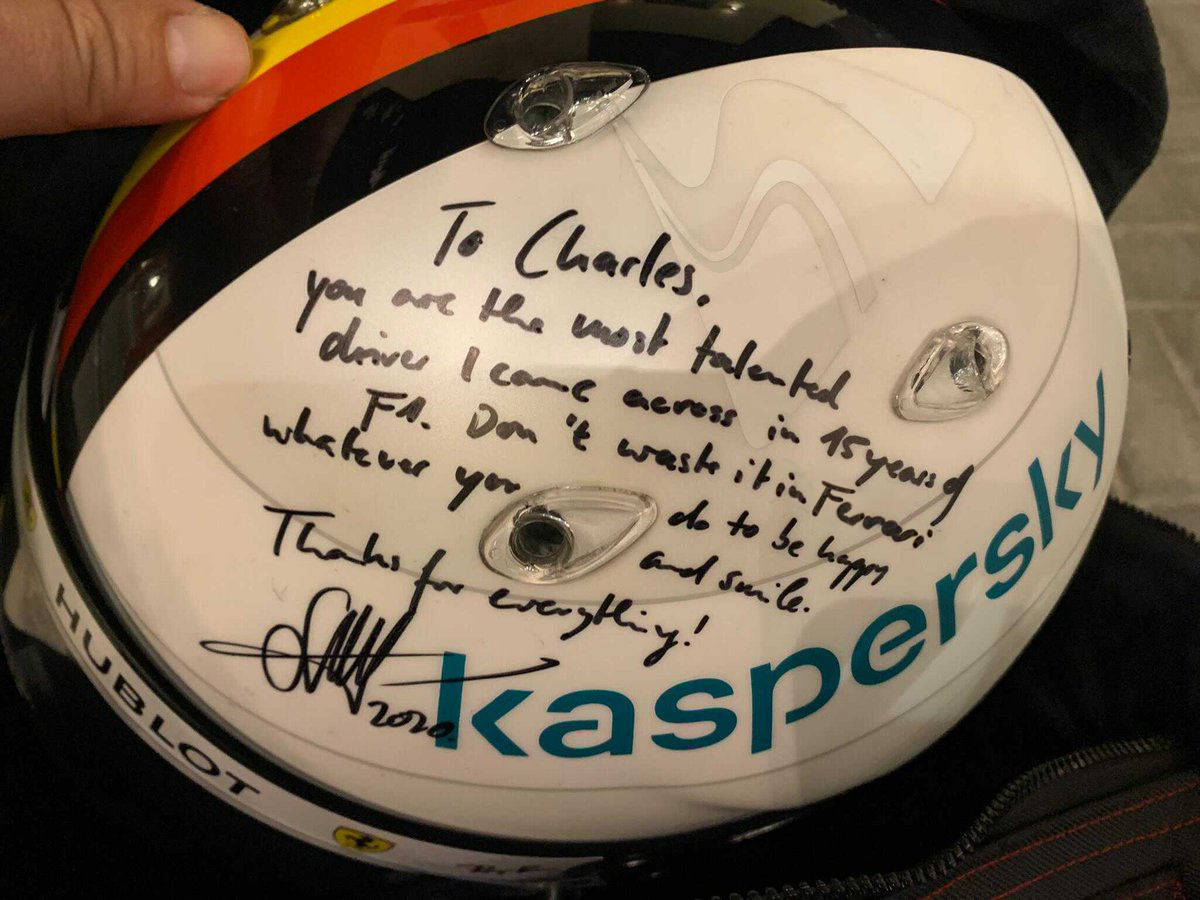 To Charles,
you are the most talented
driver I came across in 15 years of
F1. Don't waste it in Ferrari
whatever you do to be happy
and smile.
Thanks for everything!
2020
kaspersky
HUBLOT